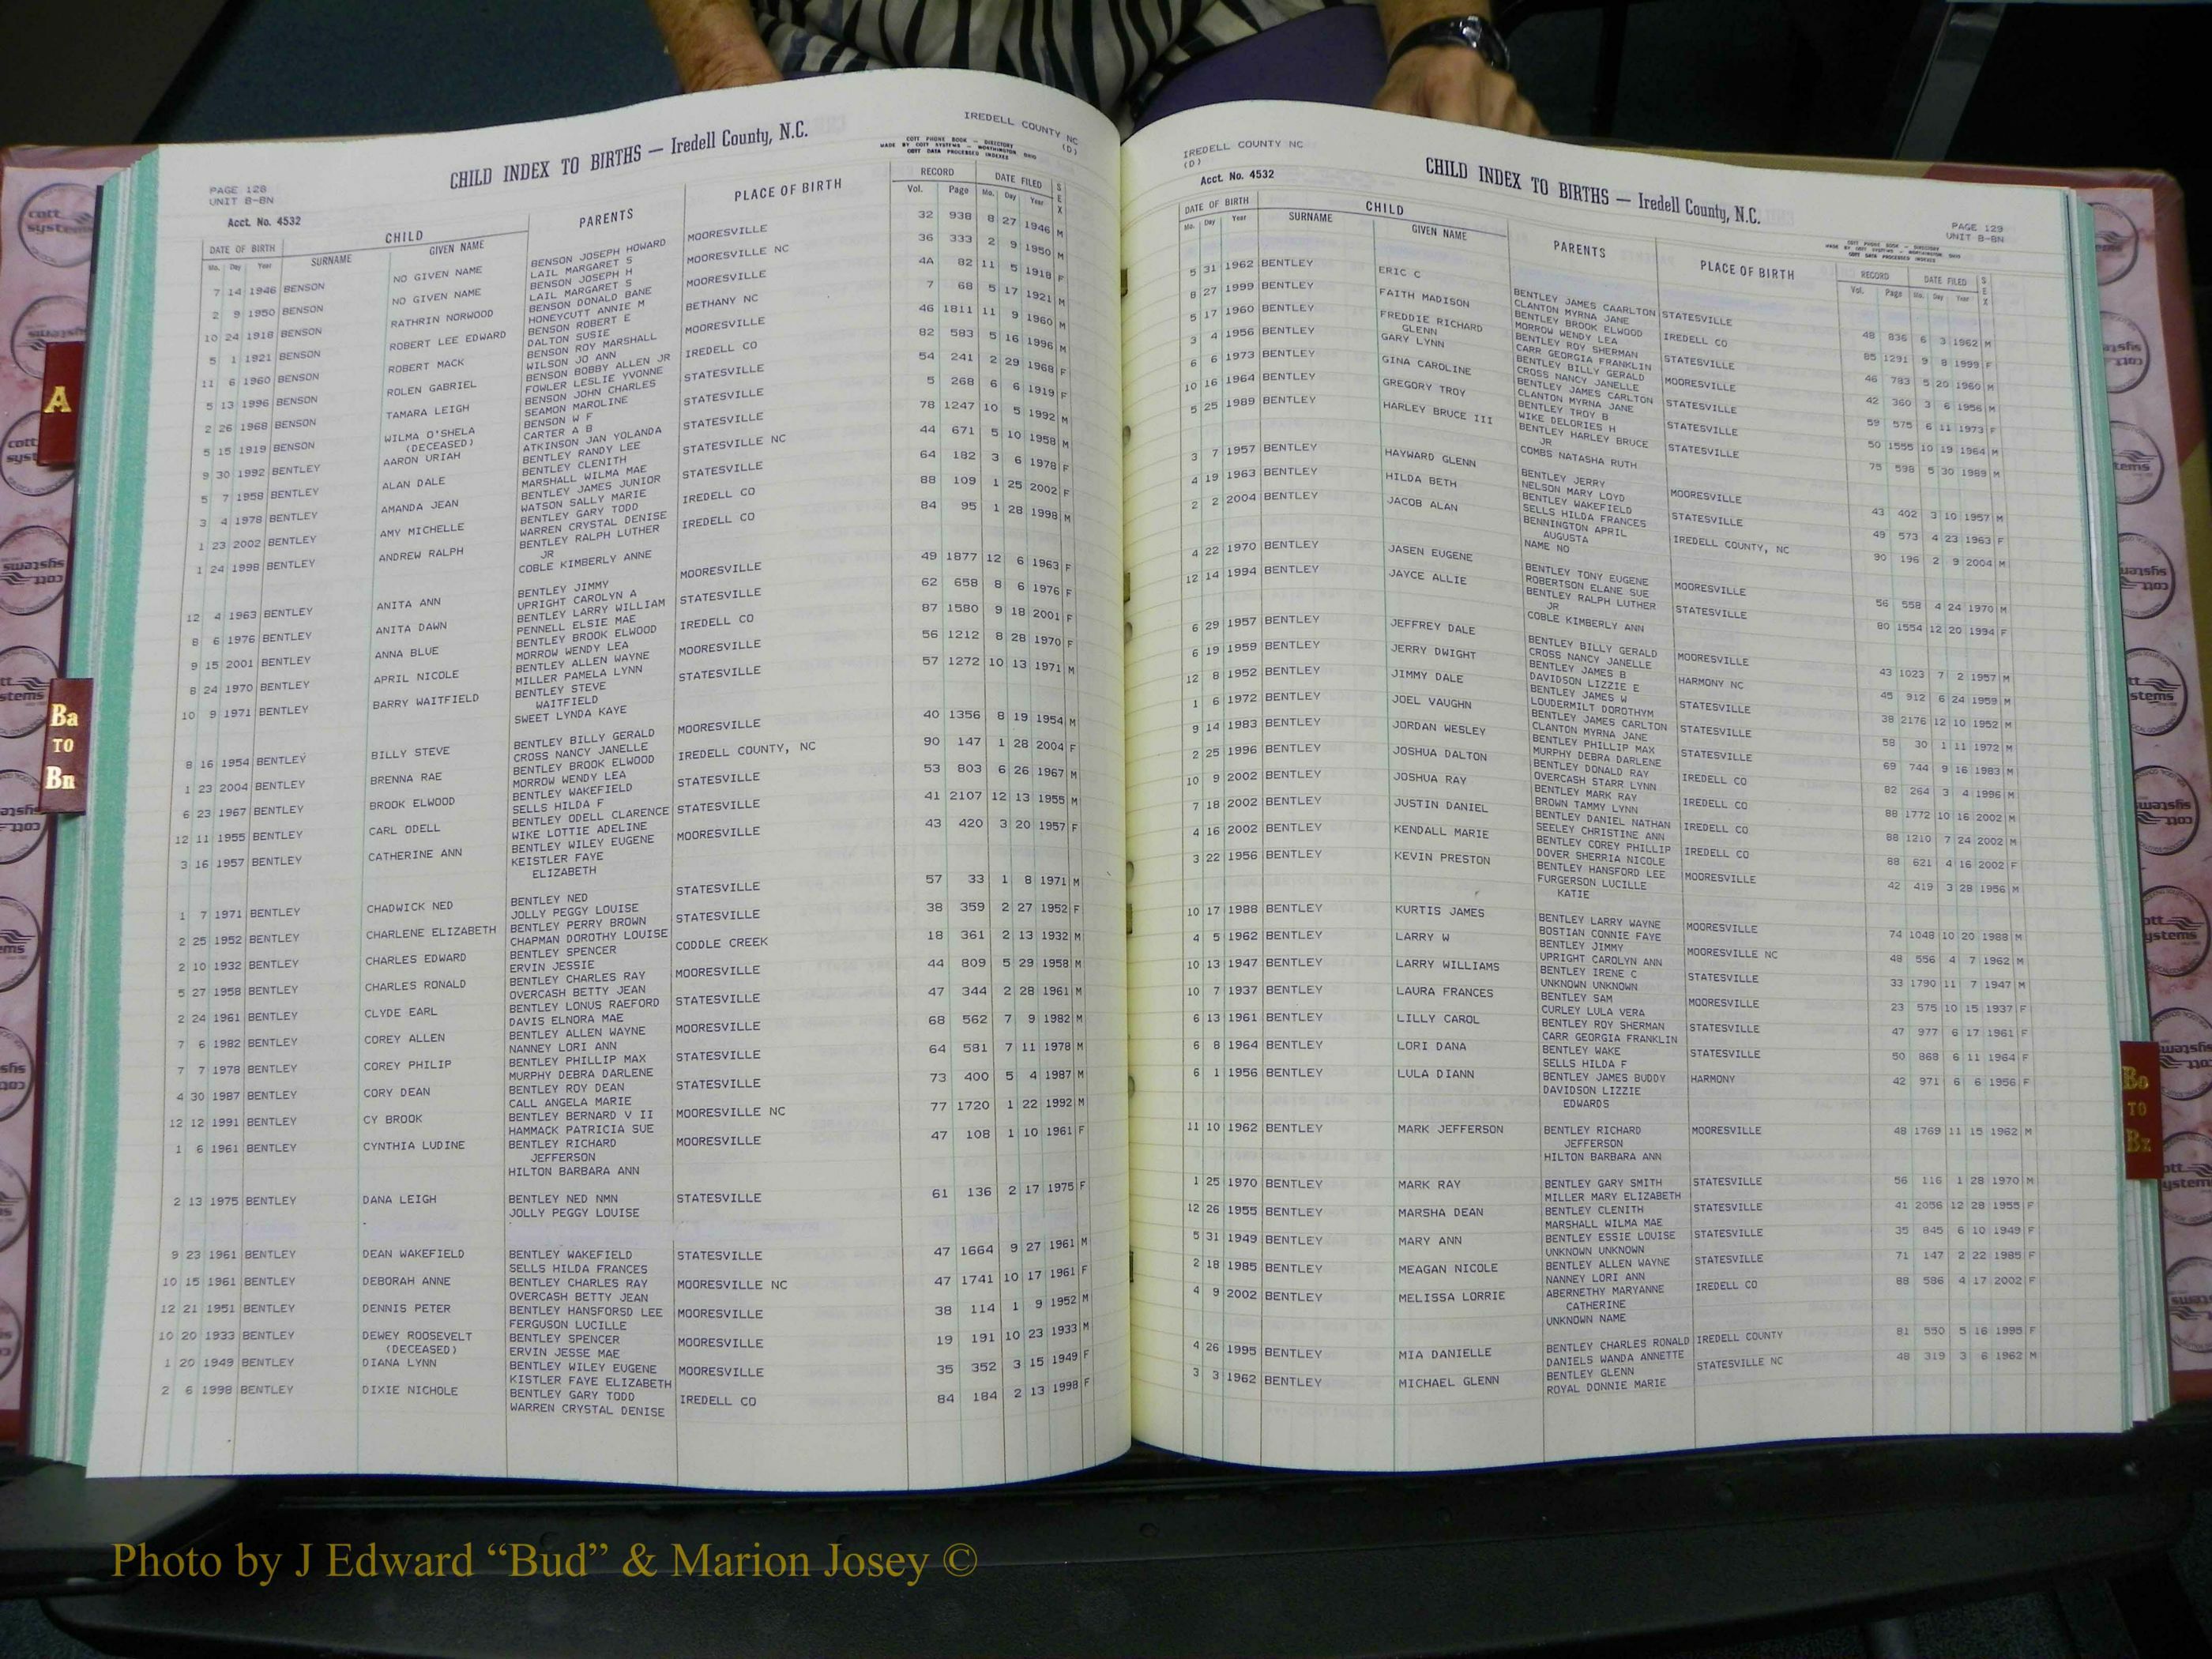 IREDELL COUNTY NC
(D)
CHILD INDEX TO BIRTHS — Iredell County, N.C.
COTT PHONE BOOK — DIRECTORY
MADE BY COTT SYSTEMS — WORTHINGTON OHIO
COTT DATA PROCESSED INDEXES
PAGE 128
UNIT B-BN
Acct. No. 4532
DATE OF BIRTH CHILD PARENTS PLACE OF BIRTH RECORD DATE FILED SEX
Mo. Day Year SURNAME GIVEN NAME Vol. Page Mo. Day Year
7 14 1946 BENSON NO GIVEN NAME BENSON JOSEPH HOWARD MOORESVILLE 32 938 8 27 1946 M
LAIL MARGARET S
2 9 1950 BENSON NO GIVEN NAME BENSON JOSEPH H MOORESVILLE NC 36 333 2 9 1950 M
LAIL MARGARET S
10 24 1918 BENSON RATHRIN NORWOOD BENSON DONALD BANE MOORESVILLE 4A 82 11 5 1918 F
HONEYCUTT ANNIE M
5 1 1921 BENSON ROBERT LEE EDWARD BENSON ROBERT E BETHANY NC 7 68 5 17 1921 M
DALTON SUSIE
11 6 1960 BENSON ROBERT MACK BENSON ROY MARSHALL MOORESVILLE 46 1811 11 9 1960 M
WILSON JO ANN
5 13 1996 BENSON ROLEN GABRIEL BENSON BOBBY ALLEN JR IREDELL CO 82 583 5 16 1996 M
FOWLER LESLIE YVONNE
2 26 1968 BENSON TAMARA LEIGH BENSON JOHN CHARLES STATESVILLE 54 241 2 29 1968 F
SEAMON MAROLINE
5 15 1919 BENSON WILMA O'SHELA BENSON W F STATESVILLE 5 268 6 6 1919 F
(DECEASED) CARTER A B
9 30 1992 BENTLEY AARON URIAH ATKINSON JAN YOLANDA STATESVILLE 78 1247 10 5 1992 M
BENTLEY RANDY LEE
5 7 1958 BENTLEY ALAN DALE BENTLEY CLENITH STATESVILLE NC 44 671 5 10 1958 M
MARSHALL WILMA MAE
3 4 1978 BENTLEY AMANDA JEAN BENTLEY JAMES JUNIOR STATESVILLE 64 182 3 6 1978 F
WATSON SALLY MARIE
1 23 2002 BENTLEY AMY MICHELLE BENTLEY GARY TODD IREDELL CO 88 109 1 25 2002 F
WARREN CRYSTAL DENISE
1 24 1998 BENTLEY ANDREW RALPH BENTLEY RALPH LUTHER IREDELL CO 84 95 1 28 1998 M
JR
COBLE KIMBERLY ANNE
12 4 1963 BENTLEY ANITA ANN BENTLEY JIMMY MOORESVILLE 49 1877 12 6 1963 F
UPRIGHT CAROLYN A
8 6 1976 BENTLEY ANITA DAWN BENTLEY LARRY WILLIAM STATESVILLE 62 658 8 6 1976 F
PENNELL ELSIE MAE
9 15 2001 BENTLEY ANNA BLUE BENTLEY BROOK ELWOOD IREDELL CO 87 1580 9 18 2001 F
MORROW WENDY LEA
8 24 1970 BENTLEY APRIL NICOLE BENTLEY ALLEN WAYNE MOORESVILLE 56 1212 8 28 1970 F
MILLER PAMELA LYNN
10 9 1971 BENTLEY BARRY WAITFIELD BENTLEY STEVE STATESVILLE 57 1272 10 13 1971 M
WAITFIELD
SWEET LYNDA KAYE
8 16 1954 BENTLEY BILLY STEVE BENTLEY BILLY GERALD MOORESVILLE 40 1356 8 19 1954 M
CROSS NANCY JANELLE
1 23 2004 BENTLEY BRENNA RAE BENTLEY BROOK ELWOOD IREDELL COUNTY, NC 90 147 1 28 2004 F
MORROW WENDY LEA
6 23 1967 BENTLEY BROOK ELWOOD BENTLEY WAKEFIELD STATESVILLE 53 803 6 26 1967 M
SELLS HILDA F
12 11 1955 BENTLEY CARL ODELL BENTLEY ODELL CLARENCE STATESVILLE 41 2107 12 13 1955 M
WIKE LOTTIE ADELINE
3 16 1957 BENTLEY CATHERINE ANN BENTLEY WILEY EUGENE MOORESVILLE 43 420 3 20 1957 F
KEISTLER FAYE
ELIZABETH
1 7 1971 BENTLEY CHADWICK NED BENTLEY NED STATESVILLE 57 33 1 8 1971 M
JOLLY PEGGY LOUISE
2 25 1952 BENTLEY CHARLENE ELIZABETH BENTLEY PERRY BROWN STATESVILLE 38 359 2 27 1952 F
CHAPMAN DOROTHY LOUISE
2 10 1932 BENTLEY CHARLES EDWARD BENTLEY SPENCER CODDLE CREEK 18 361 2 13 1932 M
ERVIN JESSIE
5 27 1958 BENTLEY CHARLES RONALD BENTLEY CHARLES RAY MOORESVILLE 44 809 5 29 1958 M
OVERCASH BETTY JEAN
2 24 1961 BENTLEY CLYDE EARL BENTLEY LONUS RAEFORD STATESVILLE 47 344 2 28 1961 M
DAVIS ELNORA MAE
7 6 1982 BENTLEY COREY ALLEN BENTLEY ALLEN WAYNE MOORESVILLE 68 562 7 9 1982 M
NANNEY LORI ANN
7 7 1978 BENTLEY COREY PHILIP BENTLEY PHILLIP MAX STATESVILLE 64 581 7 11 1978 M
MURPHY DEBRA DARLENE
4 30 1987 BENTLEY CORY DEAN BENTLEY ROY DEAN STATESVILLE 73 400 5 4 1987 M
CALL ANGELA MARIE
12 12 1991 BENTLEY CY BROOK BENTLEY BERNARD V II MOORESVILLE NC 77 1720 1 22 1992 M
HAMMACK PATRICIA SUE
1 6 1961 BENTLEY CYNTHIA LUDINE BENTLEY RICHARD MOORESVILLE 47 108 1 10 1961 F
JEFFERSON
HILTON BARBARA ANN
2 13 1975 BENTLEY DANA LEIGH BENTLEY NED NMN STATESVILLE 61 136 2 17 1975 F
JOLLY PEGGY LOUISE
9 23 1961 BENTLEY DEAN WAKEFIELD BENTLEY WAKEFIELD STATESVILLE 47 1664 9 27 1961 M
SELLS HILDA FRANCES
10 15 1961 BENTLEY DEBORAH ANNE BENTLEY CHARLES RAY MOORESVILLE NC 47 1741 10 17 1961 F
OVERCASH BETTY JEAN
12 21 1951 BENTLEY DENNIS PETER BENTLEY HANSFORSD LEE MOORESVILLE 38 114 1 9 1952 M
FERGUSON LUCILLE
10 20 1933 BENTLEY DEWEY ROOSEVELT BENTLEY SPENCER MOORESVILLE 19 191 10 23 1933 M
(DECEASED) ERVIN JESSE MAE
1 20 1949 BENTLEY DIANA LYNN BENTLEY WILEY EUGENE MOORESVILLE 35 352 3 15 1949 F
KISTLER FAYE ELIZABETH
2 6 1998 BENTLEY DIXIE NICHOLE BENTLEY GARY TODD IREDELL CO 84 184 2 13 1998 F
WARREN CRYSTAL DENISE
IREDELL COUNTY NC
(D)
Acct. No. 4532
CHILD INDEX TO BIRTHS — Iredell County, N.C.
PAGE 129
UNIT B-BN
COTT PHONE BOOK — DIRECTORY
MADE BY COTT SYSTEMS — WORTHINGTON OHIO
COTT DATA PROCESSED INDEXES
DATE OF BIRTH CHILD PARENTS PLACE OF BIRTH RECORD DATE FILED SEX
Mo. Day Year SURNAME GIVEN NAME Vol. Page Mo. Day Year
5 31 1962 BENTLEY ERIC C BENTLEY JAMES CAARLTON STATESVILLE 48 836 6 3 1962 M
CLANTON MYRNA JANE
8 27 1999 BENTLEY FAITH MADISON BENTLEY BROOK ELWOOD IREDELL CO 85 1291 9 8 1999 F
MORROW WENDY LEA
5 17 1960 BENTLEY FREDDIE RICHARD BENTLEY ROY SHERMAN STATESVILLE 46 783 5 20 1960 M
GLENN CARR GEORGIA FRANKLIN
3 4 1956 BENTLEY GARY LYNN BENTLEY BILLY GERALD MOORESVILLE 42 360 3 6 1956 M
CROSS NANCY JANELLE
6 6 1973 BENTLEY GINA CAROLINE BENTLEY JAMES CARLTON STATESVILLE 59 575 6 11 1973 F
CLANTON MYRNA JANE
10 16 1964 BENTLEY GREGORY TROY BENTLEY TROY B STATESVILLE 50 1555 10 19 1964 M
WIKE DELORIES H
5 25 1989 BENTLEY HARLEY BRUCE III BENTLEY HARLEY BRUCE STATESVILLE 75 598 5 30 1989 M
JR
COMBS NATASHA RUTH
3 7 1957 BENTLEY HAYWARD GLENN BENTLEY JERRY MOORESVILLE 43 402 3 10 1957 M
NELSON MARY LOYD
4 19 1963 BENTLEY HILDA BETH BENTLEY WAKEFIELD STATESVILLE 49 573 4 23 1963 F
SELLS HILDA FRANCES
2 2 2004 BENTLEY JACOB ALAN BENNINGTON APRIL IREDELL COUNTY, NC 90 196 2 9 2004 M
AUGUSTA
NAME NO
4 22 1970 BENTLEY JASEN EUGENE BENTLEY TONY EUGENE MOORESVILLE 56 558 4 24 1970 M
ROBERTSON ELANE SUE
12 14 1994 BENTLEY JAYCE ALLIE BENTLEY RALPH LUTHER STATESVILLE 80 1554 12 20 1994 F
JR
COBLE KIMBERLY ANN
6 29 1957 BENTLEY JEFFREY DALE BENTLEY BILLY GERALD MOORESVILLE 43 1023 7 2 1957 M
CROSS NANCY JANELLE
6 19 1959 BENTLEY JERRY DWIGHT BENTLEY JAMES B HARMONY NC 45 912 6 24 1959 M
DAVIDSON LIZZIE E
12 8 1952 BENTLEY JIMMY DALE BENTLEY JAMES W STATESVILLE 38 2176 12 10 1952 M
LOUDERMILT DOROTHYM
1 6 1972 BENTLEY JOEL VAUGHN BENTLEY JAMES CARLTON STATESVILLE 58 30 1 11 1972 M
CLANTON MYRNA JANE
9 14 1983 BENTLEY JORDAN WESLEY BENTLEY PHILLIP MAX STATESVILLE 69 744 9 16 1983 M
MURPHY DEBRA DARLENE
2 25 1996 BENTLEY JOSHUA DALTON BENTLEY DONALD RAY IREDELL CO 82 264 3 4 1996 M
OVERCASH STARR LYNN
10 9 2002 BENTLEY JOSHUA RAY BENTLEY MARK RAY IREDELL CO 88 1772 10 16 2002 M
BROWN TAMMY LYNN
7 18 2002 BENTLEY JUSTIN DANIEL BENTLEY DANIEL NATHAN IREDELL CO 88 1210 7 24 2002 M
SEELEY CHRISTINE ANN
4 16 2002 BENTLEY KENDALL MARIE BENTLEY COREY PHILLIP IREDELL CO 88 621 4 16 2002 F
DOVER SHERRIA NICOLE
3 22 1956 BENTLEY KEVIN PRESTON BENTLEY HANSFORD LEE MOORESVILLE 42 419 3 28 1956 M
FURGERSON LUCILLE
KATIE
10 17 1988 BENTLEY KURTIS JAMES BENTLEY LARRY WAYNE MOORESVILLE 74 1048 10 20 1988 M
BOSTIAN CONNIE FAYE
4 5 1962 BENTLEY LARRY W BENTLEY JIMMY MOORESVILLE NC 48 556 4 7 1962 M
UPRIGHT CAROLYN ANN
10 13 1947 BENTLEY LARRY WILLIAMS BENTLEY IRENE C STATESVILLE 33 1790 11 7 1947 M
UNKNOWN UNKNOWN
10 7 1937 BENTLEY LAURA FRANCES BENTLEY SAM MOORESVILLE 23 575 10 15 1937 F
CURLEY LULA VERA
6 13 1961 BENTLEY LILLY CAROL BENTLEY ROY SHERMAN STATESVILLE 47 977 6 17 1961 F
CARR GEORGIA FRANKLIN
6 8 1964 BENTLEY LORI DANA BENTLEY WAKE STATESVILLE 50 868 6 11 1964 F
SELLS HILDA F
6 1 1956 BENTLEY LULA DIANN BENTLEY JAMES BUDDY HARMONY 42 971 6 6 1956 F
DAVIDSON LIZZIE
EDWARDS
11 10 1962 BENTLEY MARK JEFFERSON BENTLEY RICHARD MOORESVILLE 48 1769 11 15 1962 M
JEFFERSON
HILTON BARBARA ANN
1 25 1970 BENTLEY MARK RAY BENTLEY GARY SMITH STATESVILLE 56 116 1 28 1970 M
MILLER MARY ELIZABETH
12 26 1955 BENTLEY MARSHA DEAN BENTLEY CLENITH STATESVILLE 41 2056 12 28 1955 F
MARSHALL WILMA MAE
5 31 1949 BENTLEY MARY ANN BENTLEY ESSIE LOUISE STATESVILLE 35 845 6 10 1949 F
UNKNOWN UNKNOWN
2 18 1985 BENTLEY MEAGAN NICOLE BENTLEY ALLEN WAYNE STATESVILLE 71 147 2 22 1985 F
NANNEY LORI ANN
4 9 2002 BENTLEY MELISSA LORRIE ABERNETHY MARYANNE IREDELL CO 88 586 4 17 2002 F
CATHERINE
UNKNOWN NAME
4 26 1995 BENTLEY MIA DANIELLE BENTLEY CHARLES RONALD IREDELL COUNTY 81 550 5 16 1995 F
DANIELS WANDA ANNETTE
3 3 1962 BENTLEY MICHAEL GLENN BENTLEY GLENN STATESVILLE NC 48 319 3 6 1962 M
ROYAL DONNIE MARIE
A
Ba
TO
Bn
Bo
TO
Bz
cott
systems
Photo by J Edward “Bud” & Marion Josey ©